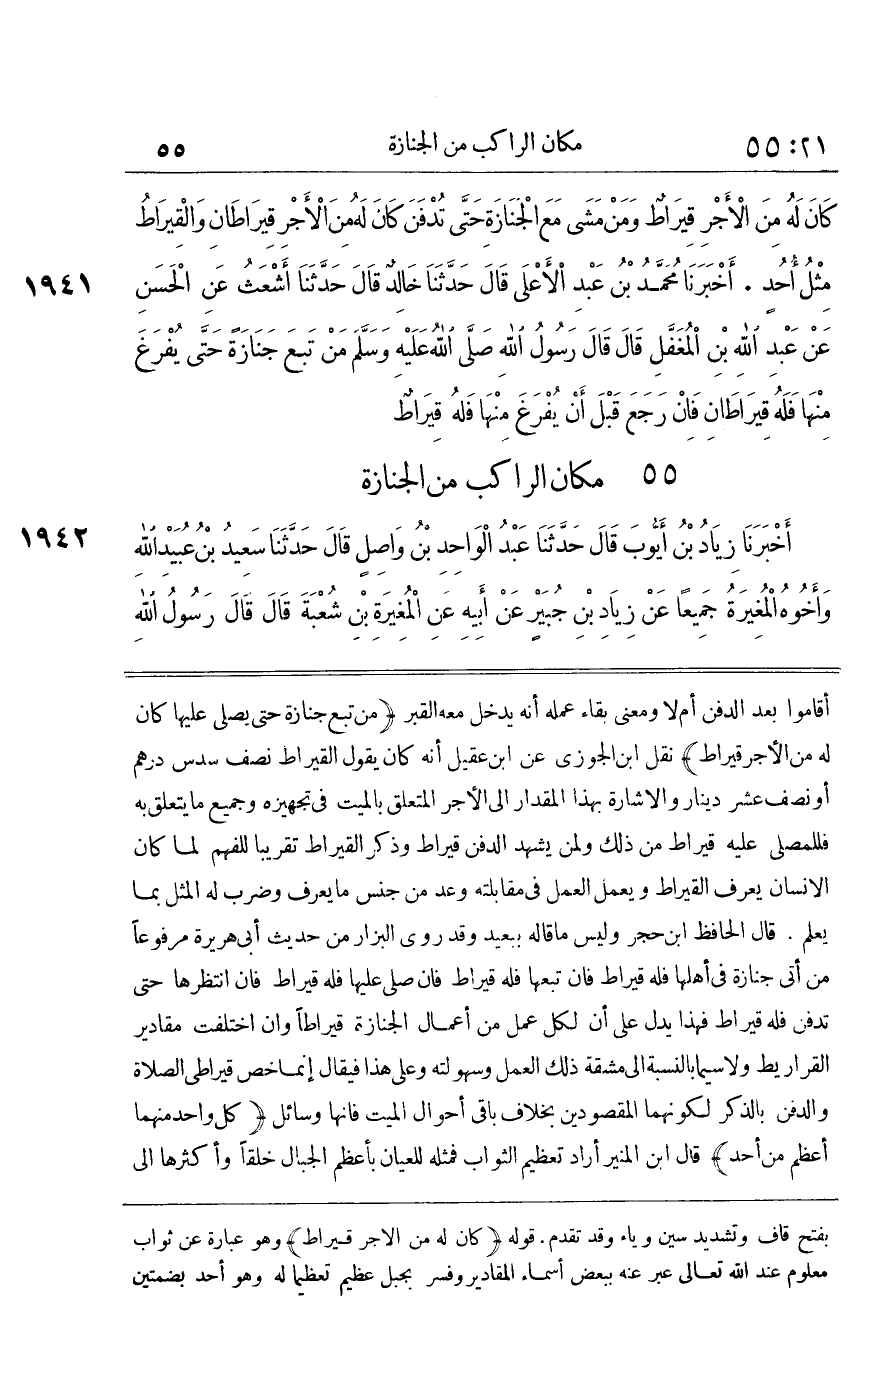 ٢١: ٥٥ مكان الراكب من الجنازة ٥٥
كَانَ لَهُ مِنَ الْأَجْرِ قِيرَاطٌ وَمَنْ مَشَى مَعَ الْجَنَازَةِ حَتَّى تُدْفَنَ كَانَ لَهُ مِنَ الْأَجْرِ قِيرَاطَانِ وَالْقِيرَاطُ
مِثْلُ أُحُدٍ . أَخْبَرَنَا مُحَمَّدُ بْنُ عَبْدِ الْأَعْلَى قَالَ حَدَّثَنَا خَالِدٌ قَالَ حَدَّثَنَا أَشْعَثُ عَنِ الْحَسَنِ ١٩٤١
عَنْ عَبْدِ اللّٰهِ بْنِ الْمُغَفَّلِ قَالَ قَالَ رَسُولُ اللّٰهِ صَلَّى اللّٰهُ عَلَيْهِ وَسَلَّمَ مَنْ تَبِعَ جَنَازَةً حَتَّى يُفْرَغَ
مِنْهَا فَلَهُ قِيرَاطَانِ فَانْ رَجَعَ قَبْلَ أَنْ يُفْرَغَ مِنْهَا فَلَهُ قِيرَاطٌ
٥٥ مكان الراكب من الجنازة
أَخْبَرَنَا زِيَادُ بْنُ أَيُّوبَ قَالَ حَدَّثَنَا عَبْدُ الْوَاحِدِ بْنُ وَاصِلٍ قَالَ حَدَّثَنَا سَعِيدُ بْنُ عُبَيْدِ اللّٰهِ ١٩٤٢
وَأَخُوهُ الْمُغِيرَةُ جَمِيعًا عَنْ زِيَادِ بْنِ جُبَيْرٍ عَنْ أَبِيهِ عَنِ الْمُغِيرَةِ بْنِ شُعْبَةَ قَالَ قَالَ رَسُولُ اللّٰهِ
أقاموا بعد الدفن أم لا ومعنى بقاء عمله أنه يدخل معه القبر ﴿من تبع جنازة حتى يصلى عليها كان
له من الأجر قيراط﴾ نقل ابن الجوزى عن ابن عقيل أنه كان يقول القيراط نصف سدس درهم
أو نصف عشر دينار والاشارة بهذا المقدار الى الأجر المتعلق بالميت فى تجهيزه وجميع ما يتعلق به
فللمصلى عليه قيراط من ذلك ولمن يشهد الدفن قيراط وذكر القيراط تقريبا للفهم لما كان
الانسان يعرف القيراط ويعمل العمل فى مقابلته وعد من جنس ما يعرف وضرب له المثل بما
يعلم . قال الحافظ ابن حجر وليس ماقاله ببعيد وقد روى البزار من حديث أبى هريرة مرفوعاً
من أتى جنازة فى أهلها فله قيراط فان تبعها فله قيراط فان صلى عليها فله قيراط فان انتظرها حتى
تدفن فله قيراط فهذا يدل على أن لكل عمل من أعمال الجنازة قيراطاً وان اختلفت مقادير
القراريط ولاسيما بالنسبة الى مشقة ذلك العمل وسهولته وعلى هذا فيقال إنما خص قيراطى الصلاة
والدفن بالذكر لكونهما المقصودين بخلاف باقى أحوال الميت فانها وسائل ﴿كل واحد منهما
أعظم من أحد﴾ قال ابن المنير أراد تعظيم الثواب فمثله للعيان بأعظم الجبال خلقاً وأكثرها الى
بفتح قاف وتشديد سين وياء وقد تقدم. قوله ﴿كان له من الاجر قيراط﴾ وهو عبارة عن ثواب
معلوم عند الله تعالى عبر عنه ببعض أسماء المقادير وفسر بجبل عظيم تعظيما له وهو أحد بضمتين